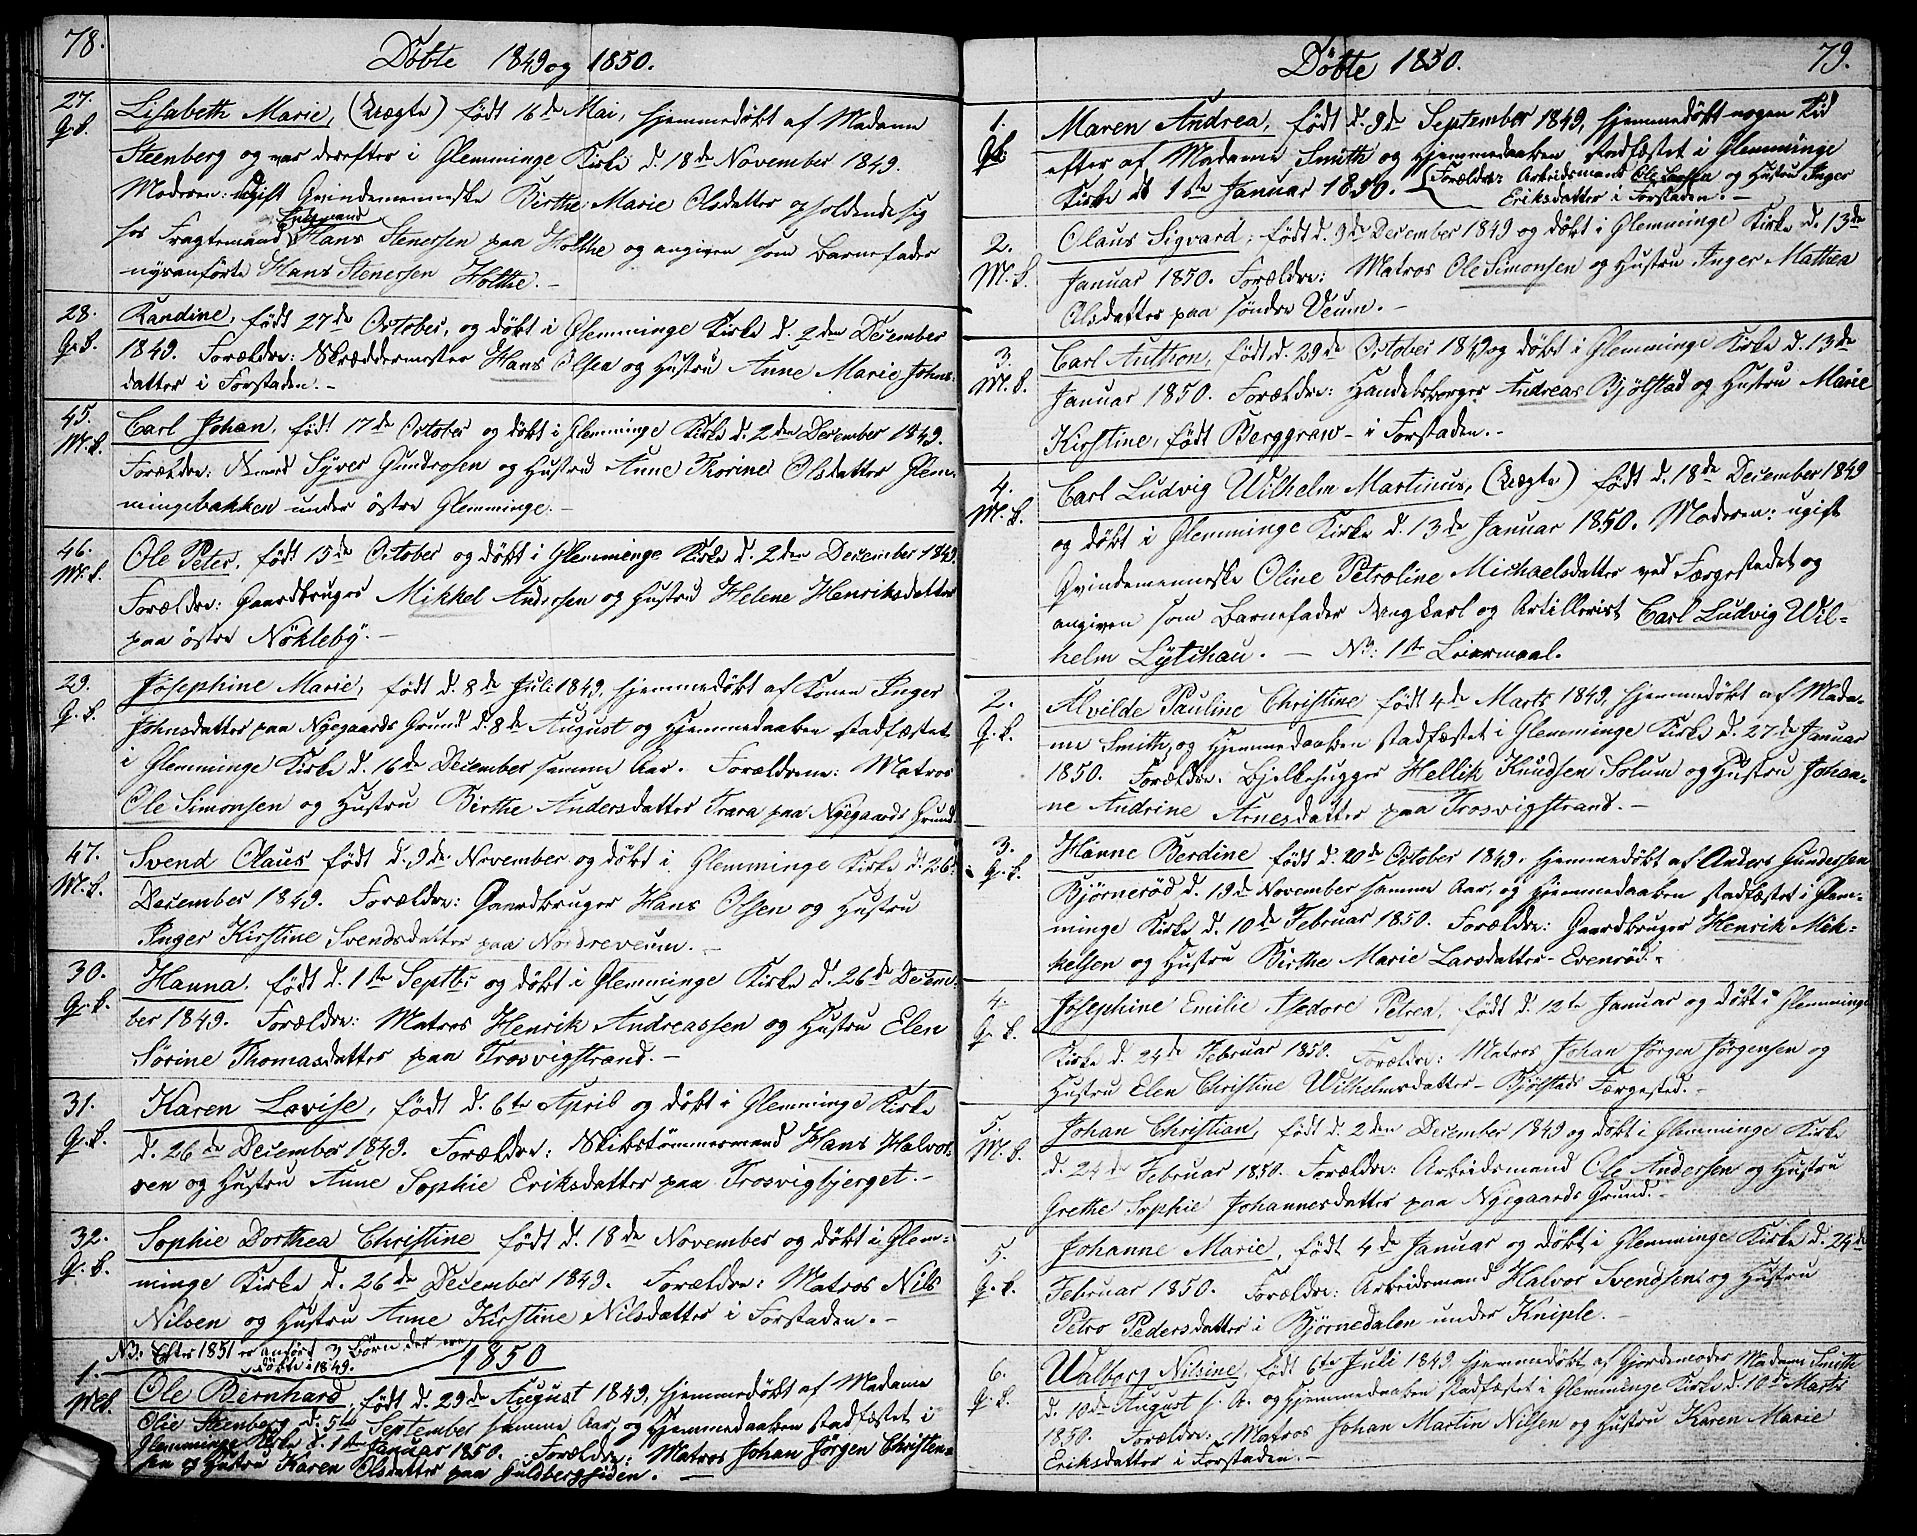 78.
Döbte 1849 og 1850.
27.
Q.k.
Lisabeth Marie, (Uægte) født 16de Mai, hjemmedøbt af Madame
Steenberg og var derefter i Glemminge Kirke d. 18de November 1849.
Moderen: ugift Qvindemenneske Birthe Marie Olsdatter opholdende sig
hos Fragtemand Hans Stenersen paa Holthe og angiven som Barnefader
nysanförte Hans Stenersen Holthe.-
28.
Q.k.
Randine, født 27de October, og døbt i Glemminge Kirke d. 2den December
1849. Forældre: Skræddermester Hans Olsen og Hustru Anne Marie Johns-
datter i Forstaden.-
45.
M.k.
Carl Johan, født 17de October og døbt i Glemminge Kirke d. 2den December 1849.
Forældre: Syver Gundrosen og Hustru Anne Thorine Olsdatter Glem-
mingebakken under östre Glemminge.-
46.
M.k.
Ole Peter, født 15de October og døbt i Glemminge Kirke d. 2den December 1849.
Forældre: Gaardbruger Mikkel Andersen og Hustru Helene Henriksdatter
paa östre Nökleby.-
29.
Q.k.
Josephine Marie, født d. 8de Juli 1849, hjemmedøbt af Konen Inger
Johnsdatter paa Nygaards Grund d. 8de August og Hjemmedaaben stadfæstet
i Glemminge Kirke d. 16de December samme Aar. Forældrene: Matros
Ole Simonsen og Hustru Birthe Andersdatter Trara paa Nygaards Grund.
47.
M.k.
Svend Olaus født d. 9de November og døbt i Glemminge Kirke d. 26
December 1849. Forældre: Gaardbruger Hans Olsen og Hustru
Inger Kirstine Svendsdatter paa Nordreveum.-
30.
Q.k.
Hanna, født d. 1ste Septbr og døbt i Glemminge Kirke d. 26de Decem-
ber 1849. Forældre: Matros Henrik Andreassen og Hustru Elen
Sørine Thomasdatter paa Trosvigstrand.-
31.
Q.k.
Karen Lovise, født d. 6te April og døbt i Glemminge Kirke
d. 26de December 1849. Forældre: Skibstömmermand Hans Halvor-
sen og Hustru Anne Sophie Eriksdatter paa Trosvigbjerget.-
32.
Q.k.
Sophie Dorthea Christine født d. 18de November og døbt i Glem-
minge Kirke d. 26de December 1849. Forældre: Matros Nils
Nilsen og Hustru Anne Kirstine Nilsdatter i Forstaden.-
NB: Efter 1851 er anført 3 Börn der ere
døbte i 1849.
1850
1.
Mk.
Ole Bernhard, født d. 29de August 1849, hjemmedøbt af Madame
Olie Steenberg d. 5te September samme Aar, og Hjemmedaaben stadfæstet i
Glemminge Kirke d. 1ste Januar 1850. Forældre: Matros Johan Jörgen Christen-
sen og Hustru Karen Olsdatter paa Guldbergsiden.-
79.
Döbte 1850.
1.
Qk.
Maren Andrea, født d. 9de September 1849, hjemmedøbt nogen Tid
efter af Madame Smith og Hjemmedaaben stadfæstet i Glemminge
Kirke d. 1ste Januar 1850. Forældre: Arbeidsmand Ole Larsen og Hustru Inger
Eriksdatter i Forstaden.-
2.
M.k.
Olaus Sigvard, født d. 9de December 1849 og døbt i Glemminge Kirke d. 13de
Januar 1850. Forældre: Matros Ole Simonsen og Hustru Inger Mathea
Olsdatter paa søndre Veum.-
3.
M.k.
Carl Anthon, født d. 29de October 1849 og døbt i Glemminge Kirke d. 13de
Januar 1850. Forældre: Handelsborger Andreas Bjølstad og Hustru Marie
Kirstine, født Berggraw- i Forstaden.-
4.
M.k.
Carl Ludvig Wilhelm Martinus, (Uægte) født d. 18de December 1849
og døbt i Glemminge Kirke d. 13de Januar 1850. Moderen: ugift
Qvindemenneske Oline Petroline Michaelsdatter ved Færgestedet og
angiven som Barnefader Ungkarl og Artillerist Carl Ludvig Wil-
helm Lytchau.- No: 1ste Leiermaal.
2.
Q.k.
Alvilde Pauline Christine født 4de Marts 1849, hjemmedøbt af Mada-
me Smith, og Hjemmedaaben stadfæstet i Glemminge Kirke d. 27de Januar
1850. Forældre: Bjelkehugger Hellik Knudsen Solum og Hustru Johan-
ne Andrine Arnesdatter paa Trosvigstrand.-
3.
Q.k.
Hanne Berdine født d. 20de October 1849. hjemmedøbt af Anders Gundersen
Björneröd d. 19de November samme Aar, og Hjemmedaaben stadfæstet i Glem-
minge Kirke d. 10de Februar 1850. Forældre: Gaardbruger Henrik Mik-
kelsen og Hustru Birthe Marie Larsdatter- Evenröd.-
4.
Q.k.
Josephine Emilie Isedore Petrea, født d. 12te Januar og døbt i Glemminge
Kirke d. 24de Februar 1850. Forældre: Matros Johan Jörgen Jörgensen og
Hustru Elen Christine Wilhelmsdatter- Bjölstads Færgested.-
5.
M.k.
Johan Christian, født d. 2den December 1849 og døbt i Glemminge Kirke
d. 24de Februar 1850. Forældre: Arbeidsmand Ole Andersen og Hustru
Grethe Sophie Johannesdatter paa Nygaards Grund.-
5.
Q.k.
Johanne Marie, født 4de Januar og døbt i Glemminge Kirke d. 24de
Februar 1850. Forældre: Arbeidsmand Halvor Svendsen og Hustru
Petro Pedersdatter i Björnedalen under Kniple.-
6.
Q.k.
Walborg Nilsine, født 6te Juli 1849, hjemmedøbt af Gjordemoder Madam Smith
d. 10de August s. A. og Hjemmedaaben stadfæstet i Glemminge Kirke d. 10de Marts
1850. Forældre: Matros Johan Martin Nilsen og Hustru Karen Marie
Eriksdatter i Forstaden.-